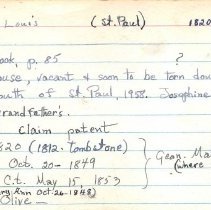 Louis (St. Paul) 1820
ook, p. 85 ?
ouse, vacant & soon to be torn dow
outh of St. Paul, 1958. Josephine
Grandfather's.
Claim patent
820 (1812-tombstone)
Oct. 20-1849 Geon. Ma
Ct. May 15, 1853 (where
Ann Oct. 26-1848)
Olive —